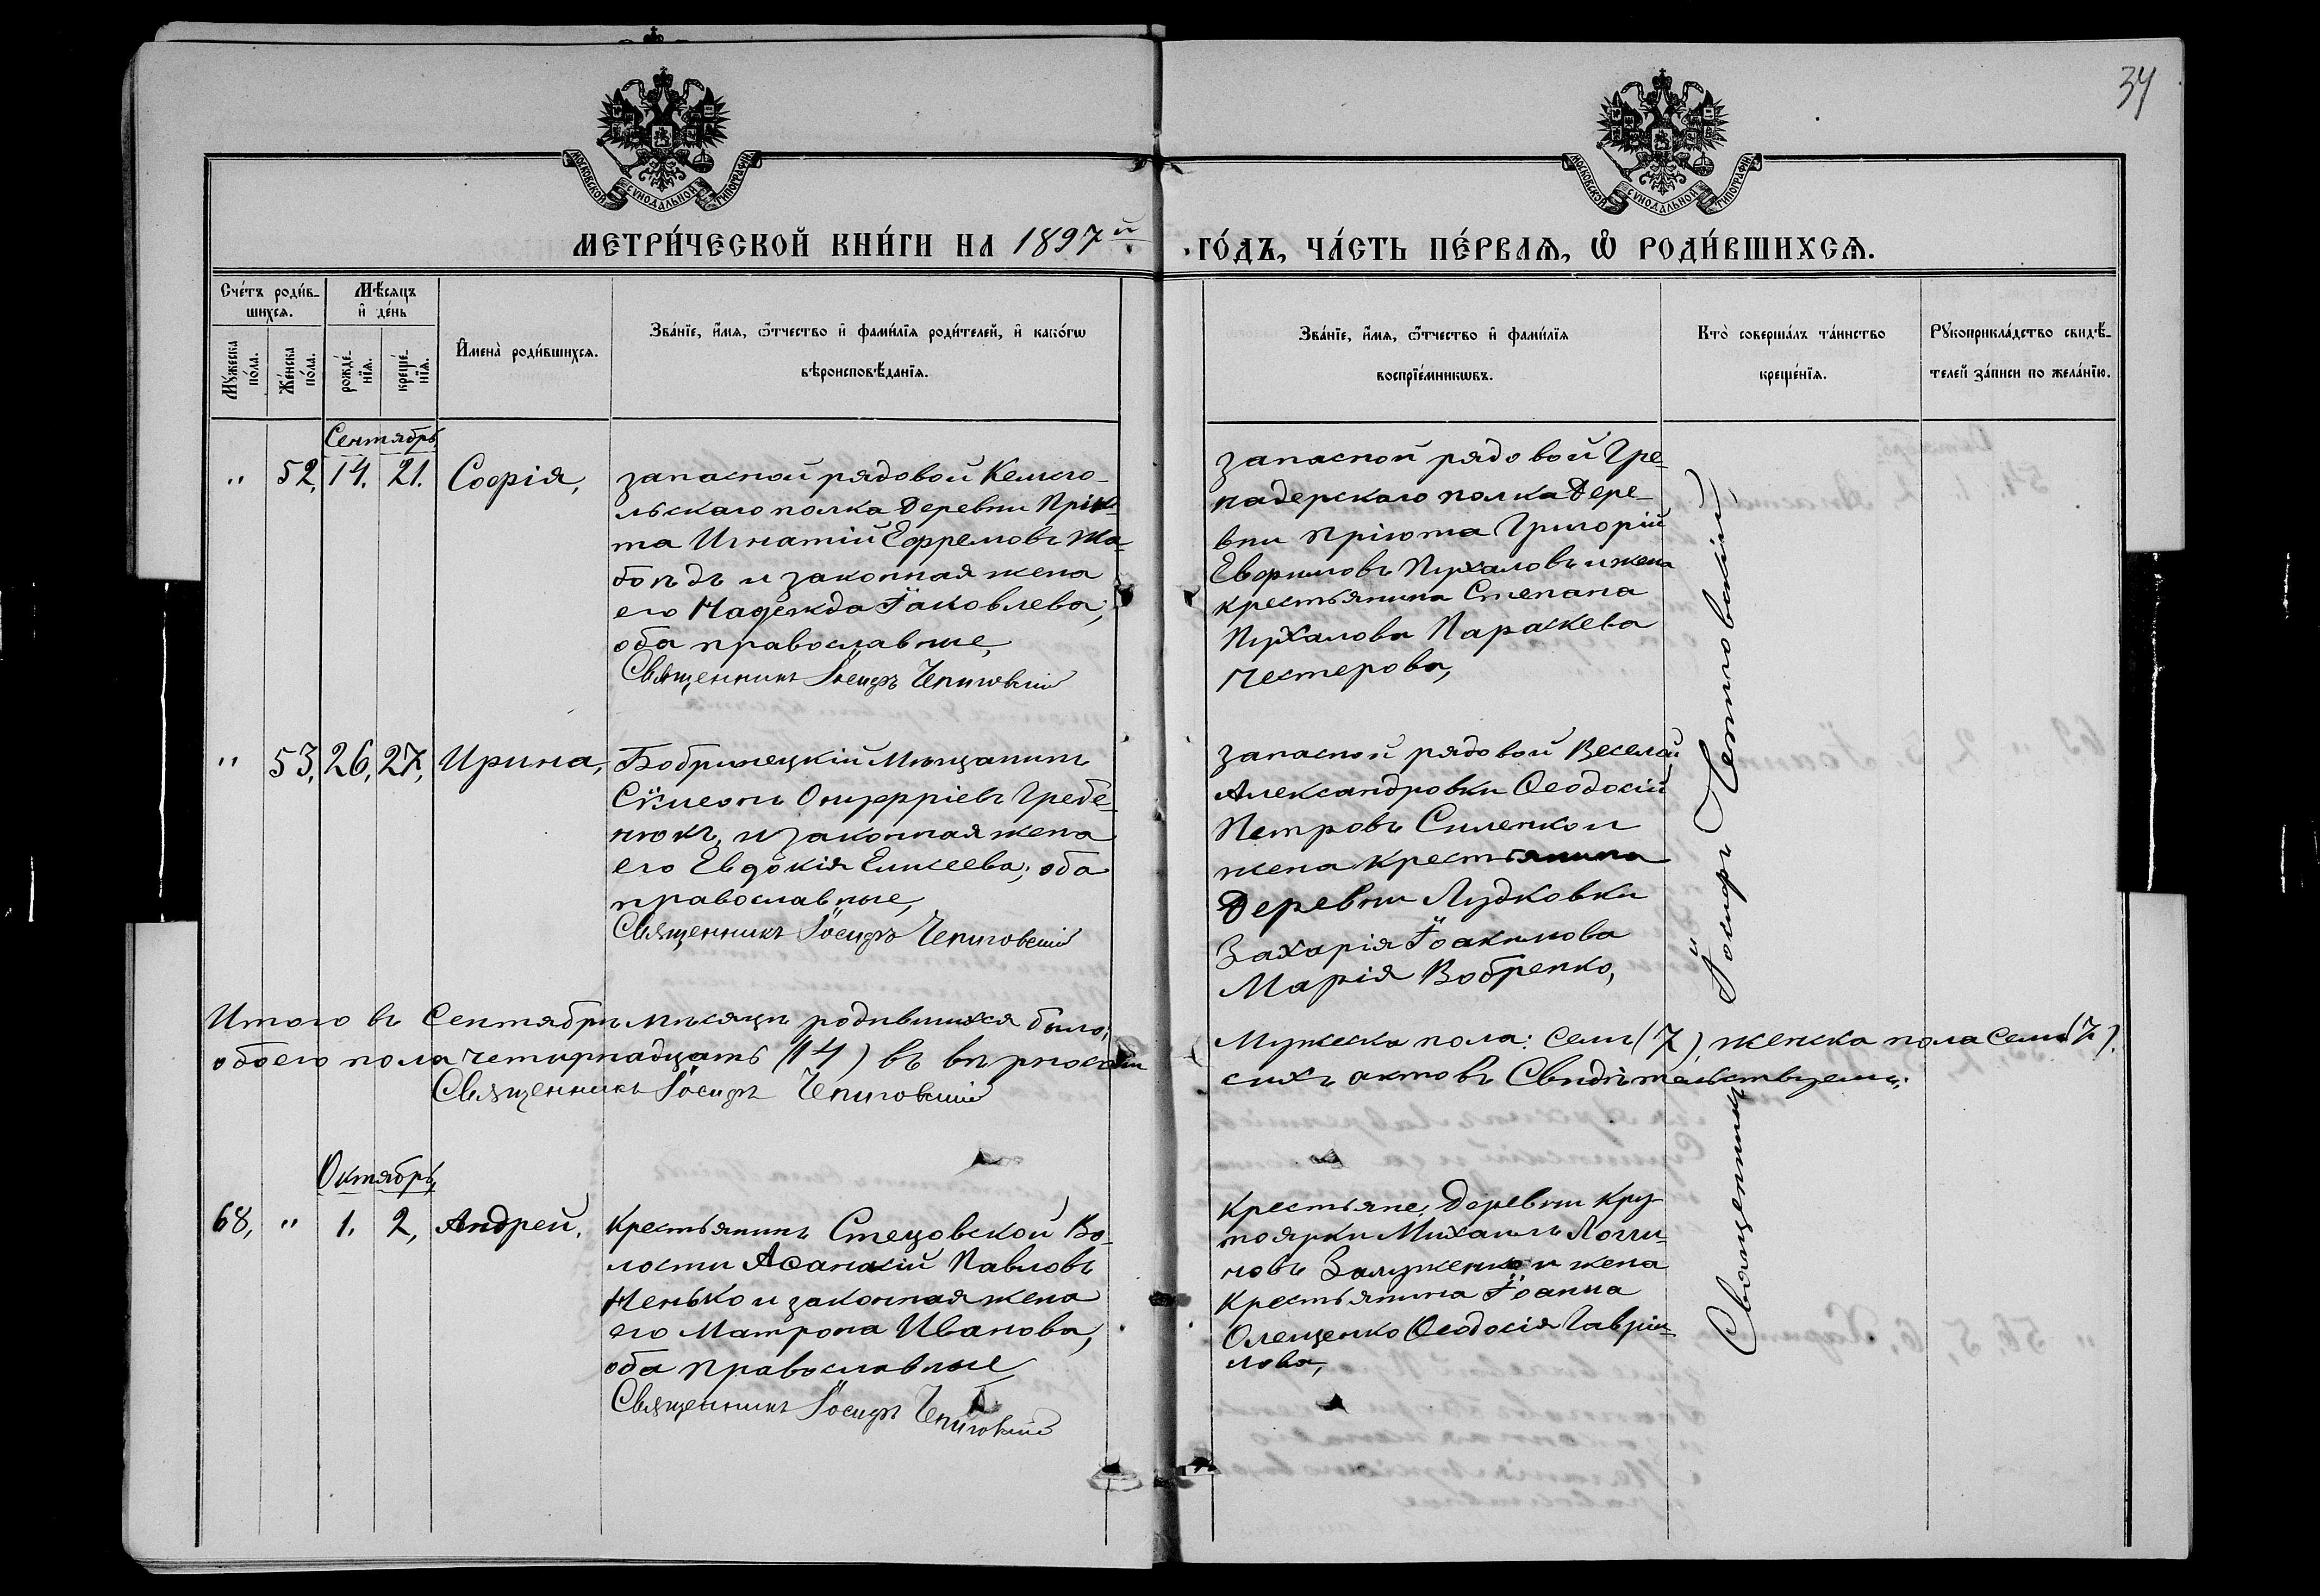 34
МОСКОВСКОЙ СѴНОДАЛЬНОЙ ТИПОГРАФІИ
МОСКОВСКОЙ СѴНОДАЛЬНОЙ ТИПОГРАФІИ
МЕТРИ́ЧЕСКОЙ КНИ́ГИ НА 1897й
ГО́ДЪ, ЧА́СТЬ ПЕ́РВАѦ, Ѡ҆ РОДИ́ВШИХСѦ.
Сче́тъ роди́в-
шихсѧ.
Мѣ́сѧцъ
и҆ де́нь
Мꙋ́жеска
по́ла.
Же́нска
по́ла.
рожде́-
нїѧ.
креще́-
нїѧ.
И҆мена̀ роди́вшихсѧ.
Зва́нїе, и҆́мѧ, ѻ҆́тчество и҆ фами́лїѧ роди́телей, и҆ како́гѡ
вѣроисповѣ́данїѧ.
Зва́нїе, и҆́мѧ, ѻ҆́тчество и҆ фами́лїѧ
воспрїе́мникѡвъ.
Кто̀ соверша́лъ та́инство
креще́нїѧ.
Рꙋкоприкла́дство свидѣ́-
телей за́писи по жела́нїю.
Сентябрь
" 52, 14. 21. Софія,
запасной рядовой Кемго-
льскаго полка Деревни Прію-
та Игнатій Ефремовъ Жа-
бонъдъ и законная жена
его Надежда Іаковлева;
оба православные,
Священникъ Іосифъ Чепиговскій
запасной рядовой Гре-
надерскаго полка Дере-
вни Пріюта Григорій
Евфимовъ Пухаловъ и жена
крестьянина Степана
Пухалова Параскева
Нестерова,
" 53, 26, 27, Ирина,
Бобринецкій Мѣщанинъ
Сѵмеонъ Онуфріевъ Гребе-
нюкъ, и законная жена
его Евдокія Елисеева; оба
православные,
Священникъ Іосифъ Чепиговскій
запасной рядовой Веселой
Александровки Ѳеодосій
Петровъ Силенко и
жена крестьянина
Деревни Лудковки
Захарія Іоакимова
Марія Вобренко,
Итого въ Сентябрѣ мѣсяцѣ родившихся было:
обоего пола четырнадцать (14) въ вѣрности
Священникъ Іосифъ Чепиговскій
Мужеска пола: семь (7), женска пола семь (7).
сихъ актовъ Свидѣтельствуемъ:
Октябрь
68, " 1. 2, Андрей,
Крестьянинъ Стецовской Во-
лости Аѳанасій Павловъ
Ненько и законная жена
его Матрона Иванова,
оба православные
Священникъ Іосифъ Чепиговскій
Крестьяне: Деревни Кру-
тоярки Михаилъ Логги-
новъ Замуженко и жена
Крестьянина Іоанна
Олещенко Ѳеодосія Гаврiи-
лова,
Священникъ Іосифъ Чепиговскій